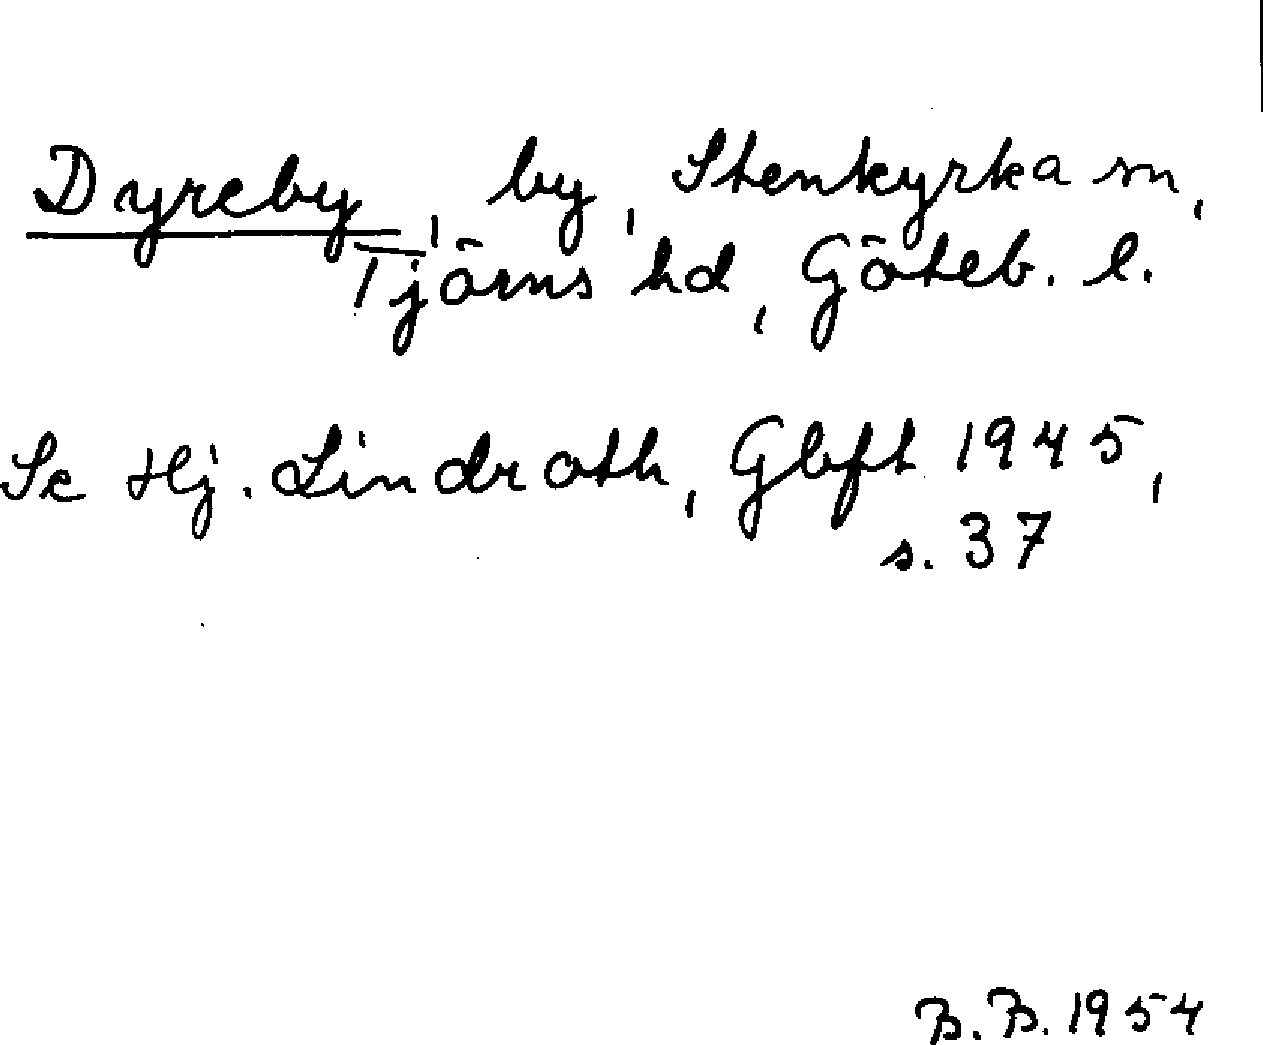 Dyreby, by, Stenkyrka sn,
Tjörns hd, Göteb. l.
Se Hj. Lindroth, Gbft 1945,
s. 37
B.B. 1954